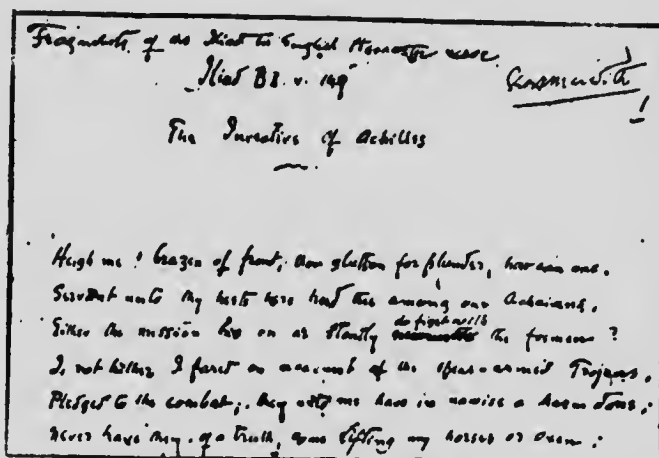 Fragments of the Iliad in English Hexameter verse
Iliad B I. v. 149
Geo Meredith
The Invective of Achilles
Heigh me! brazen of front, thou glutton for plunder, how can one,
Servant unto thy hests here heed thee among our Achaians,
Either the mission hie on or stoutly do fight with the foemen?
I, not hither I fared on account of the spear-armed Trojans,
Pledged to the combat; they unto me have in nowise a harm done;
Never have they, of a truth, come lifting my horses or oxen;